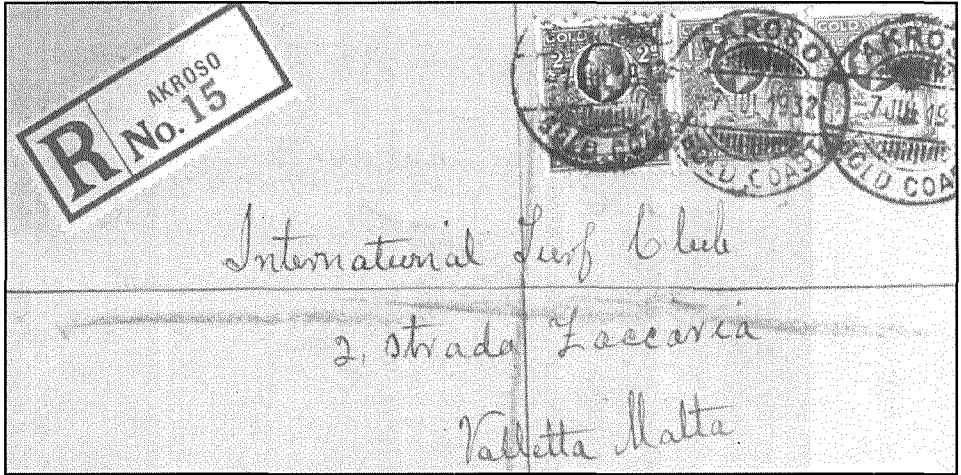 R AKROSO
No. 15
GOLD
2d 2d
AKROSO
7 JUL 1932
GOLD COAST
AKROSO
7 JUL 19
GOLD COAST
International Turf Club
2, Strada Zaccaria
Valletta Malta